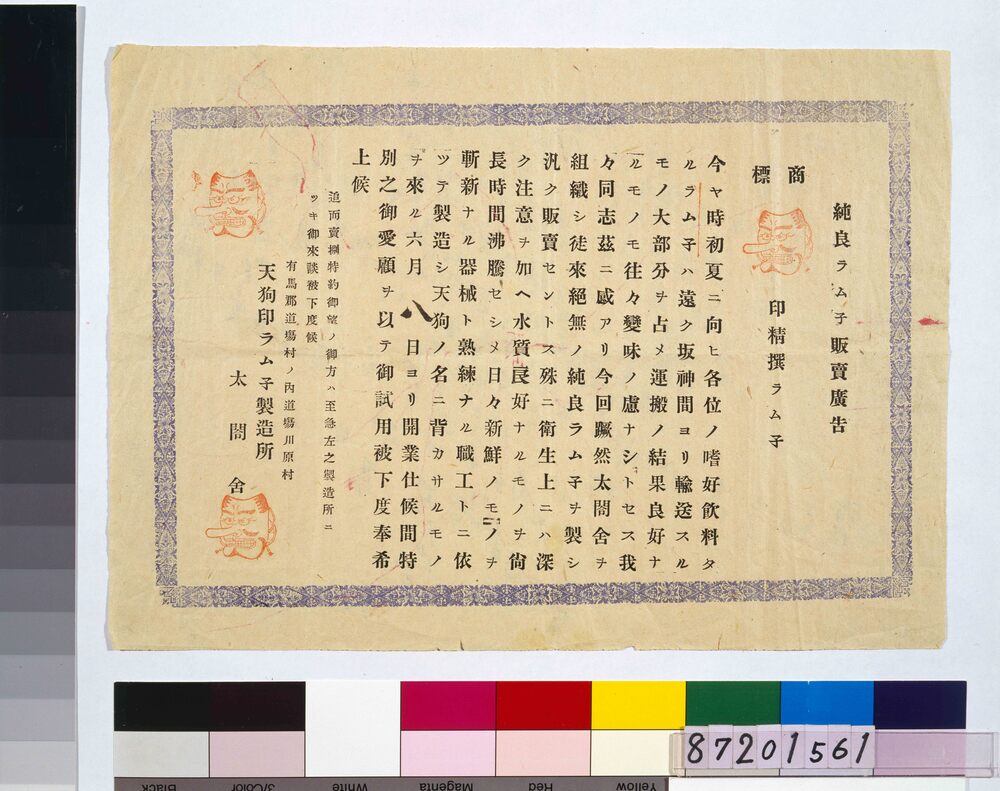 純良ラム子販賣廣告
商標
印精撰ラム子
今ヤ時初夏ニ向ヒ各位ノ嗜好飲料タ
ルラム子ハ遠ク坂神間ヨリ輸送スル
モノ大部分ヲ占メ運搬ノ結果良好ナ
ルモノモ往々變味ノ慮ナシトセス我
々同志茲ニ感アリ今回蹶然太閤舍ヲ
組織シ徒來絕無ノ純良ラム子ヲ製シ
汎ク販賣セントス殊ニ衛生上ニハ深
ク注意ヲ加ヘ水質良好ナルモノヲ尙
長時間沸騰セシメ日々新鮮ノモノヲ
斬新ナル器械ト熟練ナル職工トニ依
ツテ製造シ天狗ノ名ニ背カサルモノ
ヲ來ル六月八日ヨリ開業仕候間特
別之御愛顧ヲ以テ御試用被下度奉希
上候
追而賣捌特約御望ノ御方ハ至急左之製造所ニ
ツキ御來談被下度候
有馬郡道塲村ノ內道塲川原村
天狗印ラム子製造所
太閤舍
87201561
Black
3/Color
White
Magenta
Red
Yellow